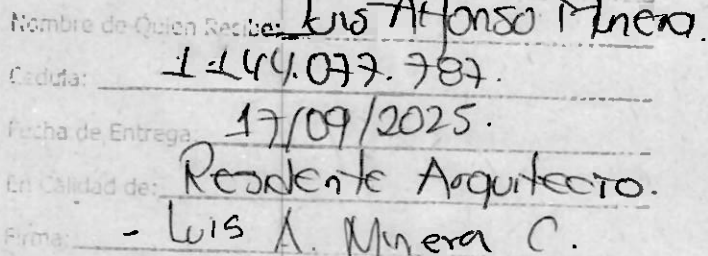 Nombre de Quien Recibe: Luis Alfonso Minera.
Cedula: 1.144.077.787.
Fecha de Entrega 17/09/2025.
En Calidad de: Residente Arquitecto.
Firma: - Luis A. Minera C.